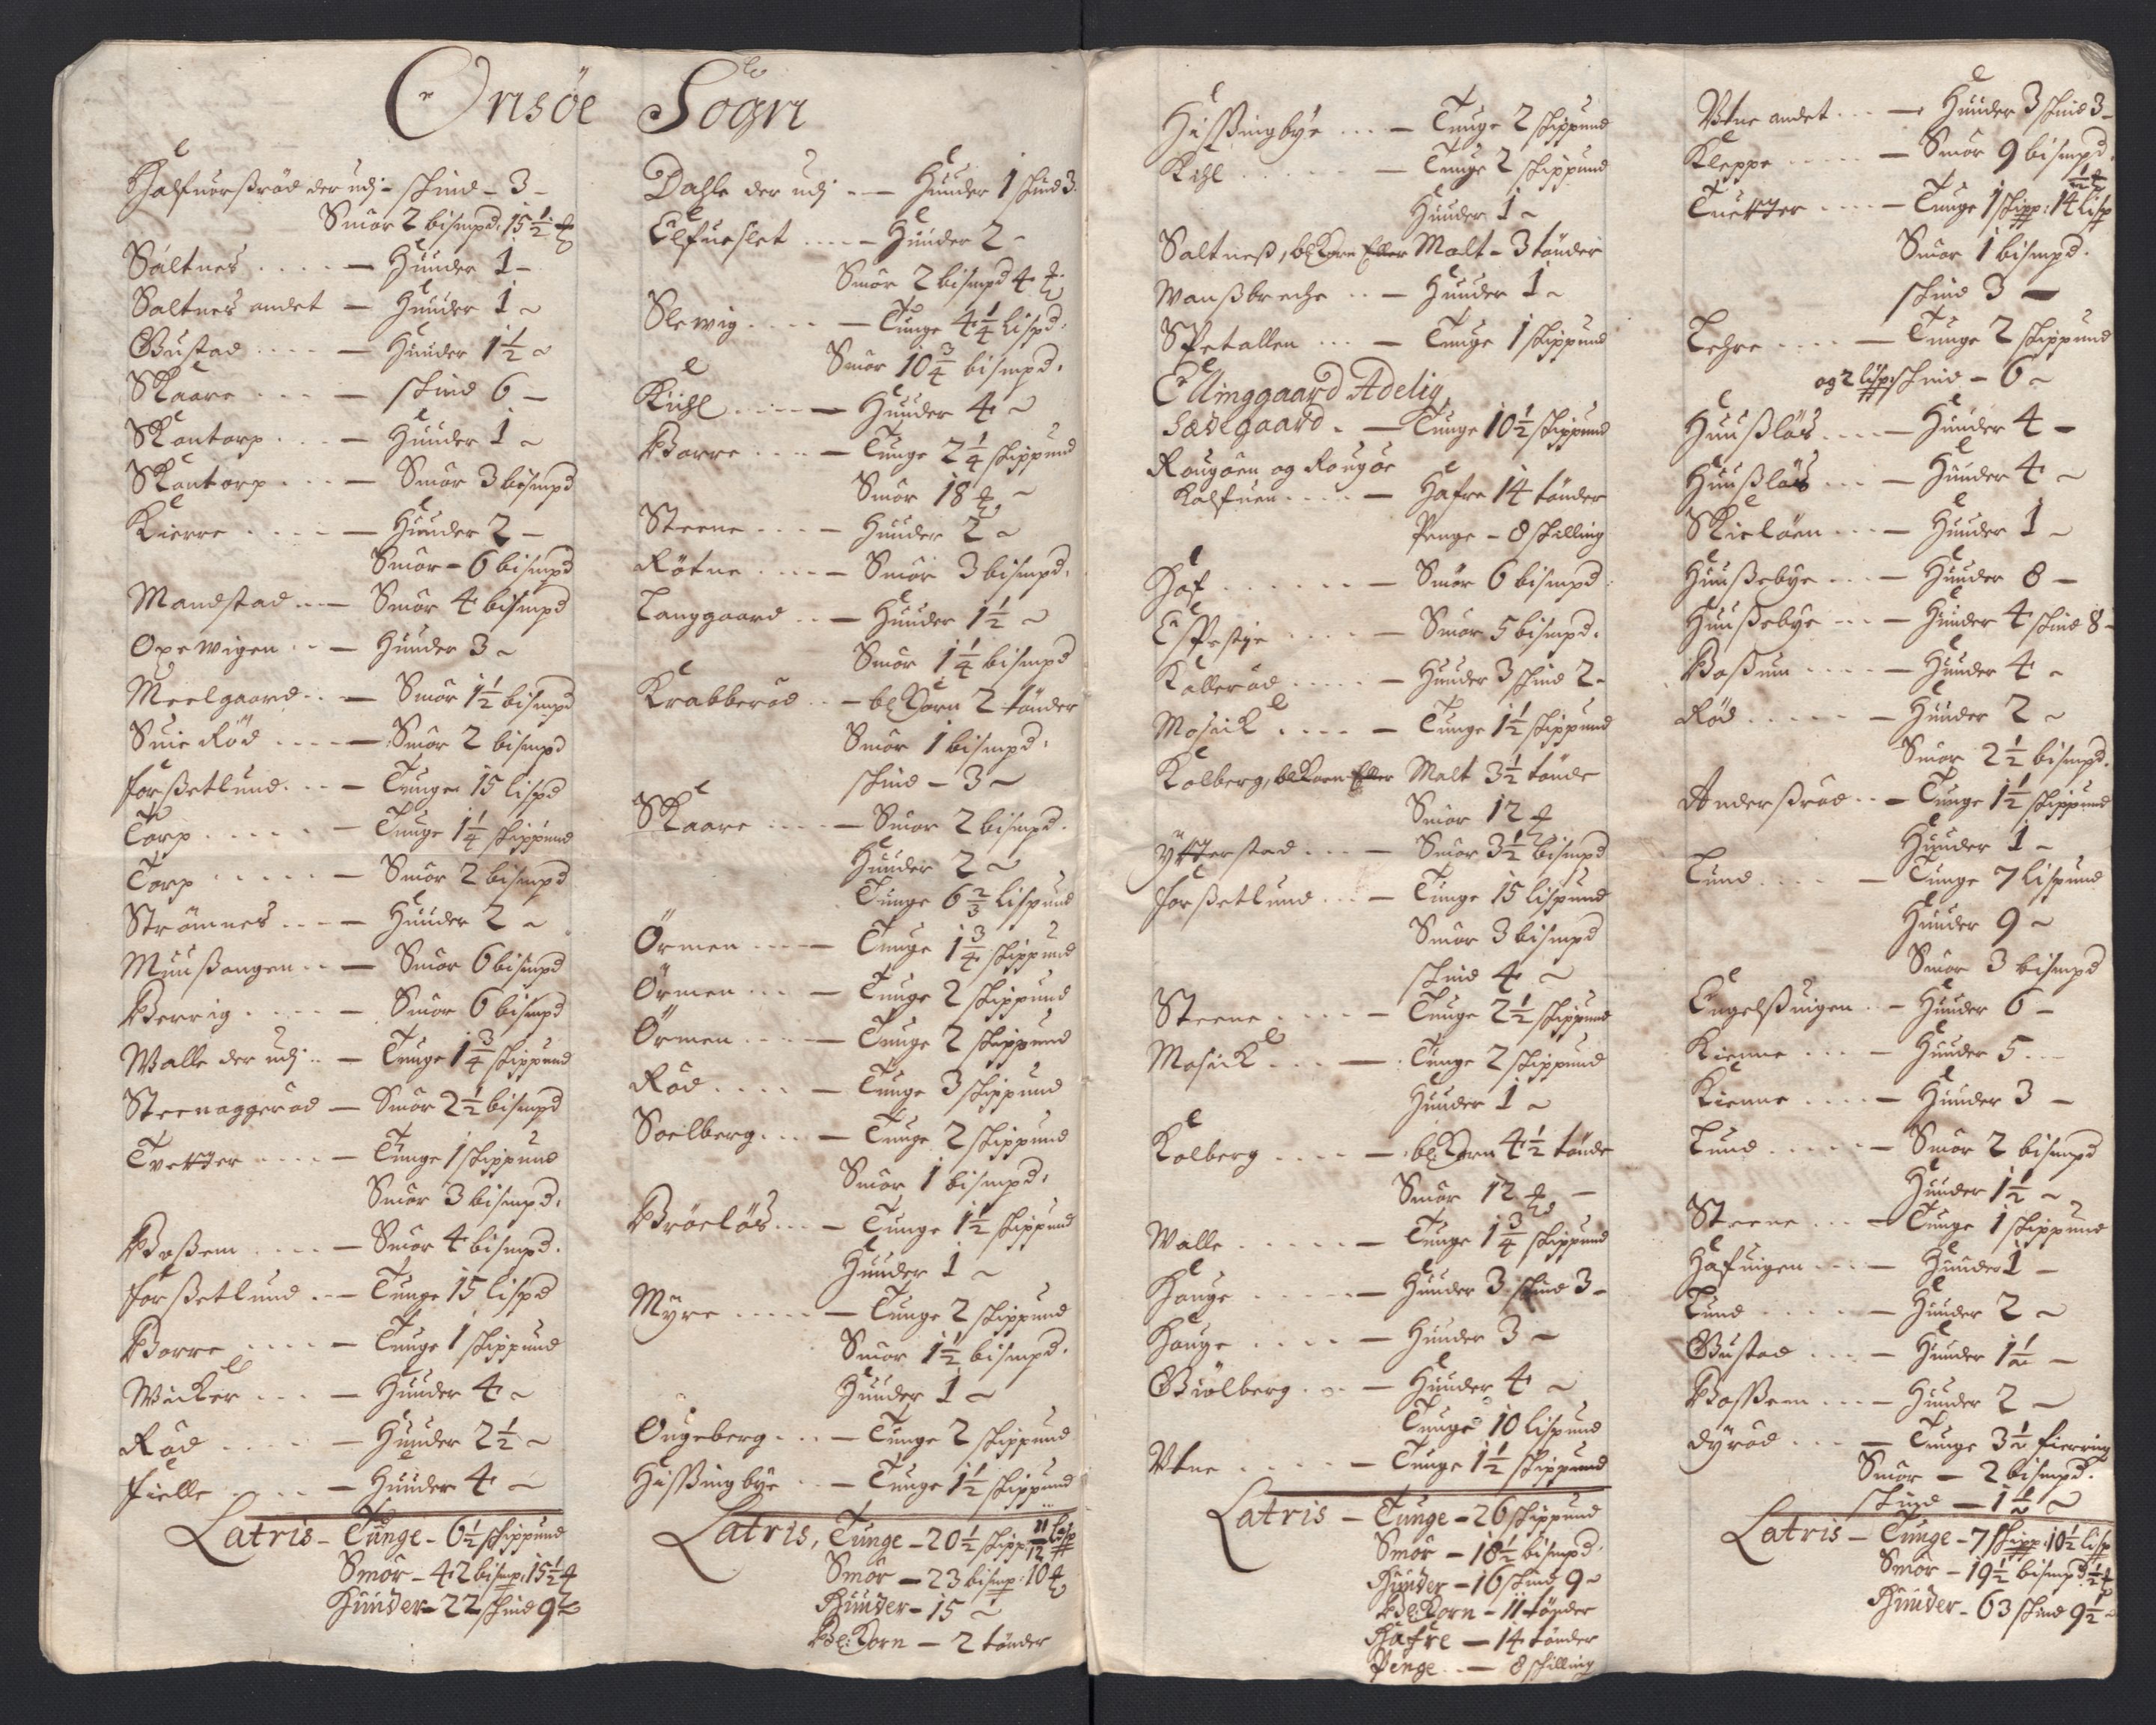 Onsöe Sogn
Halfuorßröd der udj - skind - 3 -
Smör 2 bismpd: 15½ ℔
Saltnes .... - Huuder 1 -
Saltnes andet - Huuder 1 ~
Gustad .... - Huuder 1½ ~
Skaare .... - skind 6 -
Skantorp ... - Huuder 1 ~
Skantorp ... - Smör 3 bismpd
Kierre .... - Huuder 2 -
Smör - 6 bismpd
Mandstad .. - Smör 4 bismpd
Oxewigen .. - Huuder 3 ~
Meelgaard .. - Smör 1½ bismpd
Suie Röd .... - Smör 2 bismpd
Forßetlund ... - Tunge 15 lispd
Torp ..... - Tunge 1¼ skippund
Torp ..... - Smör 2 bismpd
Strömnes ... - Huuder 2 ~
Muußangen .. - Smör 6 bismpd
Berrig .... - Smör 6 bismpd
Walle der udj .. - Tunge 1¾ skippund
Steenaggeröd - Smör 2½ bismpd
Tvetter .... - Tunge 1 skippund
Smör 3 bismpd:
Boßem .... - Smör 4 bismpd.
Forßetlund .. - Tunge 15 lispd
Borre .... - Tunge 1 skippund
Wicker ... - Huuder 4 ~
Röd .... - Huuder 2½ ~
Fielle .... - Huuder 4 ~
Latris - Tunge - 6½ skippund
Smör - 42 bismp: 15½ ℔
Huuder - 22 skind 9 ~
Dahle der udj .. - Huuder 1 skind 3.
Elfueslet .... - Huuder 2 -
Smör 2 bismpd 4 ℔
Slewig .... - Tunge 4¼ lispd:
Smör 10¾ bismpd.
Kiihl .... - Huuder 4 ~
Borre .... - Tunge 2¼ skippund
Smör 18 ℔ ~
Steene .... - Huuder 2 ~
Rötne .... - Smör 3 bismpd.
Langgaard .. - Huuder 1½ ~
Smör 1¼ bismpd
Krabberöd .. - bl Korn 2 tönder
Smör 1 bismpd.
skind - 3 ~
Skaare .... - Smör 2 bismpd.
Huuder 2 ~
Tunge 6⅔ lispund
Örmen .... - Tunge 1¾ skippund
Örmen ... - Tunge 2 skippund
Örmen .... - Tunge 2 skippund
Röd .... - Tunge 3 skippund
Soelberg ... - Tunge 2 skippund
Smör 1 bismpd.
Bröelös ... - Tunge 1½ skippund
Huuder 1 ~
Myre .... - Tunge 2 skippund
Smör 1½ bismpd.
Huuder 1 ~
Ougeberg ... - Tunge 2 skippund
Hißingbye .. - Tunge 1½ skippund
Latris, Tunge - 20½ skipp: 11/12 lisp
Smör - 23 bismp: 10 ℔
Huuder - 15 ~
Bl: Korn - 2 tönder
Hißingbye ... - Tunge 2 skippund
Kihl .... - Tunge 2 skippund
Huuder 1 ~
Saltneß, bl Korn Eller Malt - 3 tönder
Wanßbreche .. - Huuder 1 ~
Spetallen ... - Tunge 1 skippund
Ellinggaard Adelig
Sædegaard . - Tunge 10½ skippund
Rougöen og Rougöe
Kalfuen .... - Hafre 14 tönder
Penge - 8 skilling
Haf ..... - Smör 6 bismpd:
Espestye .... - Smör 5 bismpd.
Kalleröd .... - Huuder 3 skind 2 -
Mosick .... - Tunge 1½ skippund
Kolberg, bl Korn Eller Malt 3½ tönde
Smör 12 ℔
Ytterstad ... - Smör 3½ bismpd
Forßetlund ... - Tunge 15 lispund
Smör 3 bismpd
skind 4 ~
Steene .... - Tunge 2½ skippund
Mosick ... - Tunge 2 skippund
Huuder 1 ~
Kolberg .... - bl Korn 4½ tönde
Smör 12 ℔ -
Walle ..... - Tunge 1¾ skippund
Hauge ..... - Huuder 3 skind 3 -
Hauge .... - Huuder 3 ~
Giölberg ... - Huuder 4 ~
Tunge 10 lispund
Utne ..... - Tunge 1½ skippund
Latris - Tunge - 26 skippund
Smör - 18½ bismpd.
Huuder - 16 skind 9 ~
Bl: Korn - 11 tönder
Hafre - 14 tönder
Penge .. - 8 skilling
Utne andet ... - Huuder 3 skind 3 -
Kleppe ..... - Smör 9 bismpd.
½ ℔
Tuetter .... - Tunge 1 skipp: 14 lisp
Smör 1 bismpd.
skind 3 -
Lehre .... - Tunge 2 skippund
og 2 lisp: skind - 6 ~
Huußlös .... - Huuder 4 -
Huußlös ... - Huuder 4 ~
Skielöen ... - Huuder 1 ~
Huußebye ... - Huuder 8 -
Huußebye ... - Huuder 4 skind 8 -
Boßum .... - Huuder 4 ~
Röd ..... - Huuder 2 ~
Smör 2½ bismpd.
Anderßröd .. - Tunge 1½ skippund
Huuder 1 ~
Lund .... - Tunge 7 lispund
Huuder 9 ~
Smör 3 bismpd
Engelßuigen .. - Huuder 6 -
Kienne ... - Huuder 5 ..
Kienne .... - Huuder 3 -
Lund ..... - Smör 2 bismpd
Huuder 1½ ~
Steene ... - Tunge 1 skippund
Hafuigen ... - Huuder 1 -
Lund .... - Huuder 2 ~
Gustad .... - Huuder 1½ -
Boßem ... - Huuder 2 ~
Dyröd ... - Tunge 3½ fierring
Smör - 2 bismpd.
skind - 1½ ~
Latris - Tunge - 7 skipp: 10½ lisp
Smör - 19½ bismpd ½ ℔
Huuder - 63 skind 9½ ~